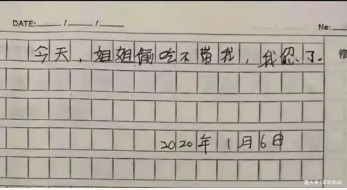 DATE: / /
No:
今天,姐姐偷吃不带我,我忍了.
2020年1月6日